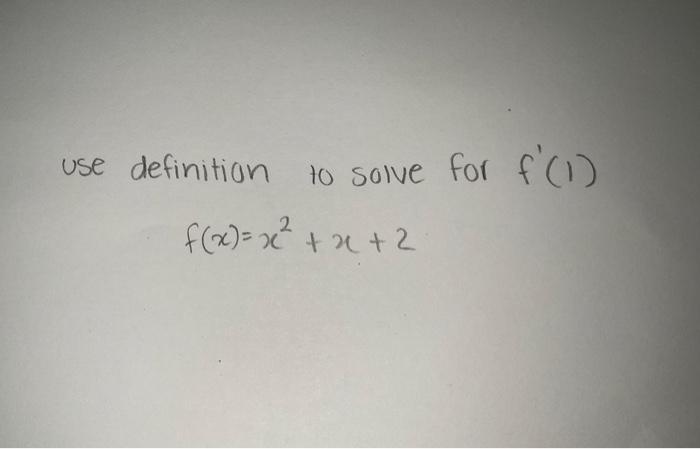 use definition to solve for f'(1)
f(x)=x² + x + 2